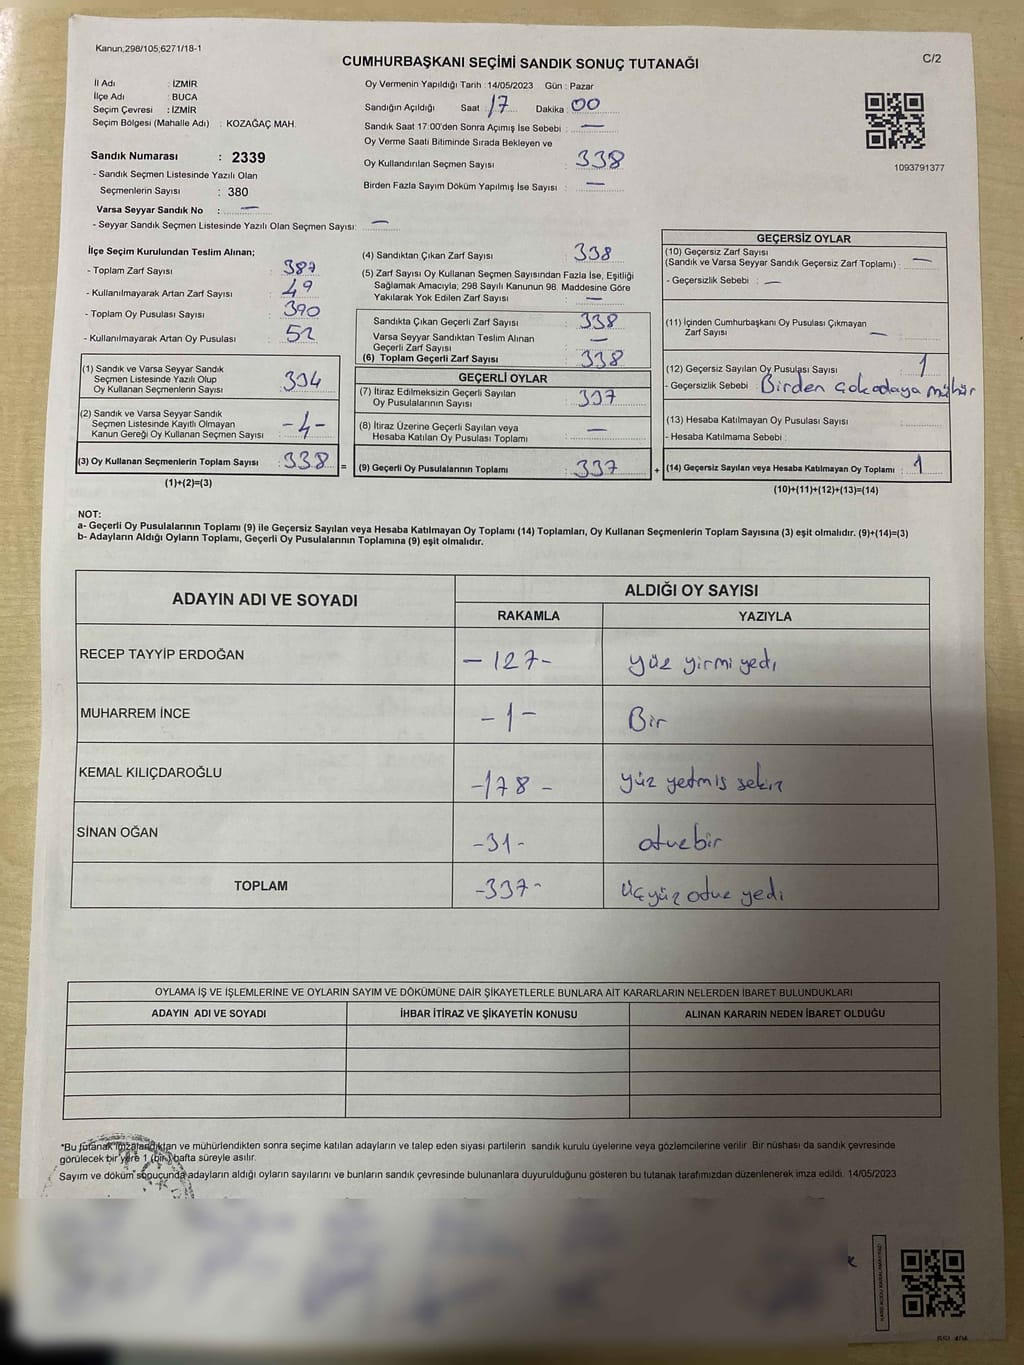 Kanun,298/105,6271/18-1
C/2
CUMHURBAŞKANI SEÇİMİ SANDIK SONUÇ TUTANAĞI
İl Adı : İZMİR
İlçe Adı : BUCA
Seçim Çevresi : İZMİR
Seçim Bölgesi (Mahalle Adı) : KOZAĞAÇ MAH.
Sandık Numarası : 2339
- Sandık Seçmen Listesinde Yazılı Olan
Seçmenlerin Sayısı : 380
Varsa Seyyar Sandık No : —
- Seyyar Sandık Seçmen Listesinde Yazılı Olan Seçmen Sayısı: —
Oy Vermenin Yapıldığı Tarih : 14/05/2023 Gün : Pazar
Sandığın Açıldığı Saat : 17 Dakika : 00
Sandık Saat 17:00'den Sonra Açımış İse Sebebi : —
Oy Verme Saati Bitiminde Sırada Bekleyen ve
Oy Kullandırılan Seçmen Sayısı : 338
Birden Fazla Sayım Döküm Yapılmış İse Sayısı : —
1093791377
İlçe Seçim Kurulundan Teslim Alınan;
- Toplam Zarf Sayısı : 387
- Kullanılmayarak Artan Zarf Sayısı : 49
- Toplam Oy Pusulası Sayısı : 390
- Kullanılmayarak Artan Oy Pusulası : 52
(1) Sandık ve Varsa Seyyar Sandık
Seçmen Listesinde Yazılı Olup
Oy Kullanan Seçmenlerin Sayısı : 334
(2) Sandık ve Varsa Seyyar Sandık
Seçmen Listesinde Kayıtlı Olmayan
Kanun Gereği Oy Kullanan Seçmen Sayısı : -4-
(3) Oy Kullanan Seçmenlerin Toplam Sayısı : 338 =
(1)+(2)=(3)
(4) Sandıktan Çıkan Zarf Sayısı : 338
(5) Zarf Sayısı Oy Kullanan Seçmen Sayısından Fazla İse, Eşitliği
Sağlamak Amacıyla; 298 Sayılı Kanunun 98. Maddesine Göre
Yakılarak Yok Edilen Zarf Sayısı : —
Sandıkta Çıkan Geçerli Zarf Sayısı : 338
Varsa Seyyar Sandıktan Teslim Alınan
Geçerli Zarf Sayısı : —
(6) Toplam Geçerli Zarf Sayısı : 338
GEÇERLİ OYLAR
(7) İtiraz Edilmeksizin Geçerli Sayılan
Oy Pusulalarının Sayısı : 337
(8) İtiraz Üzerine Geçerli Sayılan veya
Hesaba Katılan Oy Pusulası Toplamı : —
(9) Geçerli Oy Pusulalarının Toplamı : 337 +
GEÇERSİZ OYLAR
(10) Geçersiz Zarf Sayısı
(Sandık ve Varsa Seyyar Sandık Geçersiz Zarf Toplamı) : —
- Geçersizlik Sebebi : —
(11) İçinden Cumhurbaşkanı Oy Pusulası Çıkmayan
Zarf Sayısı : —
(12) Geçersiz Sayılan Oy Pusulası Sayısı : 1
- Geçersizlik Sebebi : Birden çok adaya mühür
(13) Hesaba Katılmayan Oy Pusulası Sayısı :
- Hesaba Katılmama Sebebi :
(14) Geçersiz Sayılan veya Hesaba Katılmayan Oy Toplamı : 1
(10)+(11)+(12)+(13)=(14)
NOT:
a- Geçerli Oy Pusulalarının Toplamı (9) ile Geçersiz Sayılan veya Hesaba Katılmayan Oy Toplamı (14) Toplamları, Oy Kullanan Seçmenlerin Toplam Sayısına (3) eşit olmalıdır. (9)+(14)=(3)
b- Adayların Aldığı Oyların Toplamı, Geçerli Oy Pusulalarının Toplamına (9) eşit olmalıdır.
ADAYIN ADI VE SOYADI
ALDIĞI OY SAYISI
RAKAMLA YAZIYLA
RECEP TAYYİP ERDOĞAN - 127 - yüz yirmi yedi
MUHARREM İNCE - 1 - Bir
KEMAL KILIÇDAROĞLU - 178 - yüz yetmiş sekiz
SİNAN OĞAN - 31 - otuzbir
TOPLAM - 337 - üçyüz otuz yedi
OYLAMA İŞ VE İŞLEMLERİNE VE OYLARIN SAYIM VE DÖKÜMÜNE DAİR ŞİKAYETLERLE BUNLARA AİT KARARLARIN NELERDEN İBARET BULUNDUKLARI
ADAYIN ADI VE SOYADI İHBAR İTİRAZ VE ŞİKAYETİN KONUSU ALINAN KARARIN NEDEN İBARET OLDUĞU
*Bu tutanak imzalandıktan ve mühürlendikten sonra seçime katılan adayların ve talep eden siyasi partilerin sandık kurulu üyelerine veya gözlemcilerine verilir. Bir nüshası da sandık çevresinde
görülecek bir yere 1 (bir) hafta süreyle asılır.
Sayım ve döküm sonucunda adayların aldığı oyların sayılarını ve bunların sandık çevresinde bulunanlara duyurulduğunu gösteren bu tutanak tarafımızdan düzenlenerek imza edildi. 14/05/2023